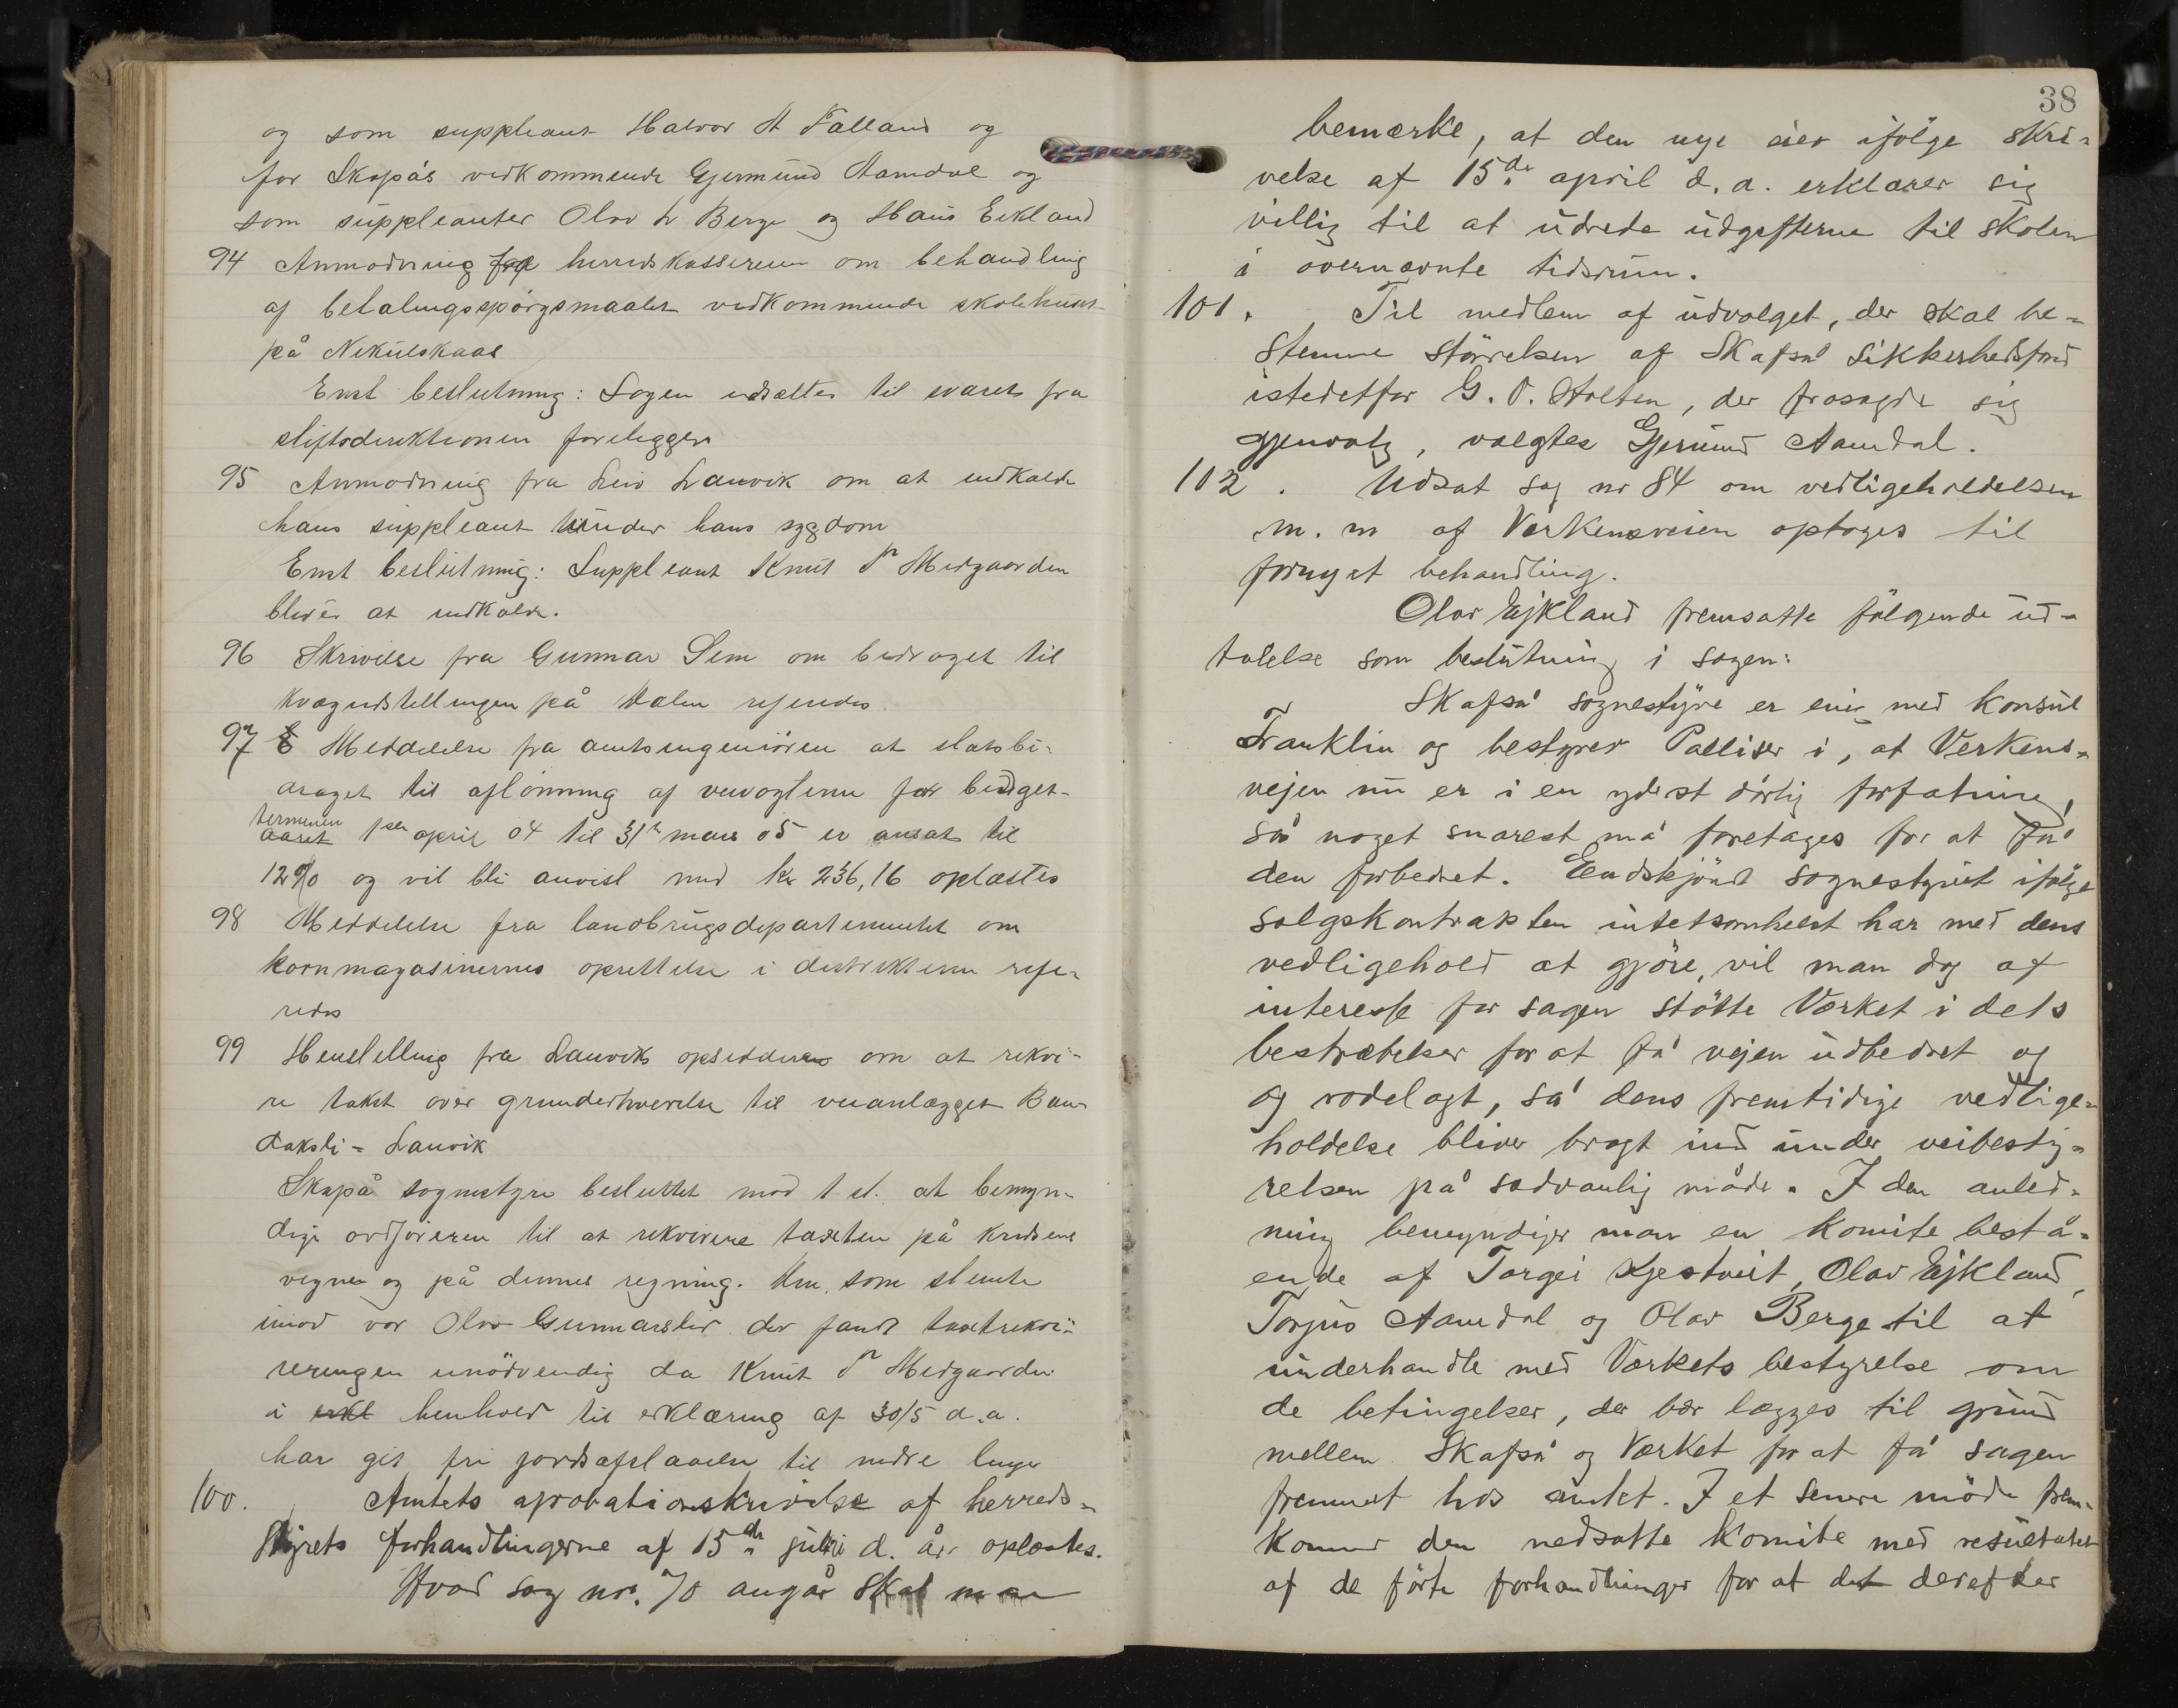 og som suppleant Halvor A Falland og
for Skapås vedkommende Gjermund Aamdal og
som suppleanter Olav L Berge og Haus Eekland
94 Anmodning herredskassereren om behandling
af betalingsspörgsmaalet vedkommende skolehuset
på Nekulskaas
Enst beslutning: Sagen udsættes til svaret fra
stiftsdirektionen foreligger
95 Anmodning fra Leiv Lauvik om at indkalde
hans suppleant under hans sygdom
Enst beslutning: Suppleant Knut P Midgaarden
bliver at indkalde.
96 Skrivelse fra Gunnar Sem om bidraget til
kvægudstellingen på Dalen refereredes
97 Meddelelse fra amtsingeniören at statsbi-
draget til aflönning af veivogterne for budget-
terminen
aaret 1ste april 04 til 31te mars 05 er ansat til
12% og vil bli anvist med kr 236,16 oplæstes
98 Meddelelse fra landbrugsdepartementet om
kornmagasinernes oprettelse i distrikterne refe-
redes
99 Henstelling fra Lauviks opsiddere om at rekvi-
re takst over grunderhvervelse til veianlægget Ban-
daksli - Lauvik
Skapå sognestyre besluttet mod 1 st. at bemyn-
dige ordföreren til at rekvirere taxten på kredsens
vegne og på dennes regning. Den, som stemte
imod var Olav Gunnarslid der fandt taxtrekvi-
reringen unödvendig da Knut P Midgaarden
i erkl henhold til erklæring af 30/5 d.a.
har git fri jordsafstaaelse til nedre linje
100. Amtets aprobationskrivelse af herreds-
styrets forhandlingerne af 15de juli d. år. oplæstes.
Hvad sag nr. 70 angår skal man
38
bemærke, at den nye eier ifölge skri-
velse af 15de april d.a. erklærer sig
villig til at udrede udgifterne til skolen
i overnævnte tidsrum.
101. Til medlem af udvalget, der skal be-
stemme störrelsen af Skafså sikkerhedsfond
istedetfor G. O. Holten, der frasagde sig
gjenvalg, valgtes Gjermund Aamdal.
102. Udsat sag nr 84 om vedligeholdelsen
m. m af Verkensveien optoges til
fornyet behandling.
Olav Ejkland fremsatte fölgende ud-
talelse som beslutning i sagen:
Skafså sognestyre er enig med konsul
Franklin og bestyrer Palliser i, at Verkens-
vejen nu er i en yderst dårlig forfatning,
så noget snarest må foretages for at få
den forbedret. Endskjöndt sognestyret ifölge
salgskontrakten intetsomhelst har med dens
vedligehold at gjöre, vil man dog af
interesse for sagen stötte Værket i dets
bestræbelser for at få vejen udbedret og
og rodelagt, så dens fremtidige vedlige-
holdelse bliver bragt ind under veibesty-
relsen på sædvanlig måde. I den anled-
ning bemyndiger man en komite bestå-
ende af Torgei Kjestveit, Olav Ejkland,
Torjus Aamdal og Olav Berge til at
underhandle med Værkets bestyrelse om
de betingelser, der bør lægges til grund
mellem Skafså og Værket for at få sagen
fremmet hos amtet. I et senere möde frem-
kommer den nedsatte komite med resultatet
af de förte forhandlinger for at det derefter